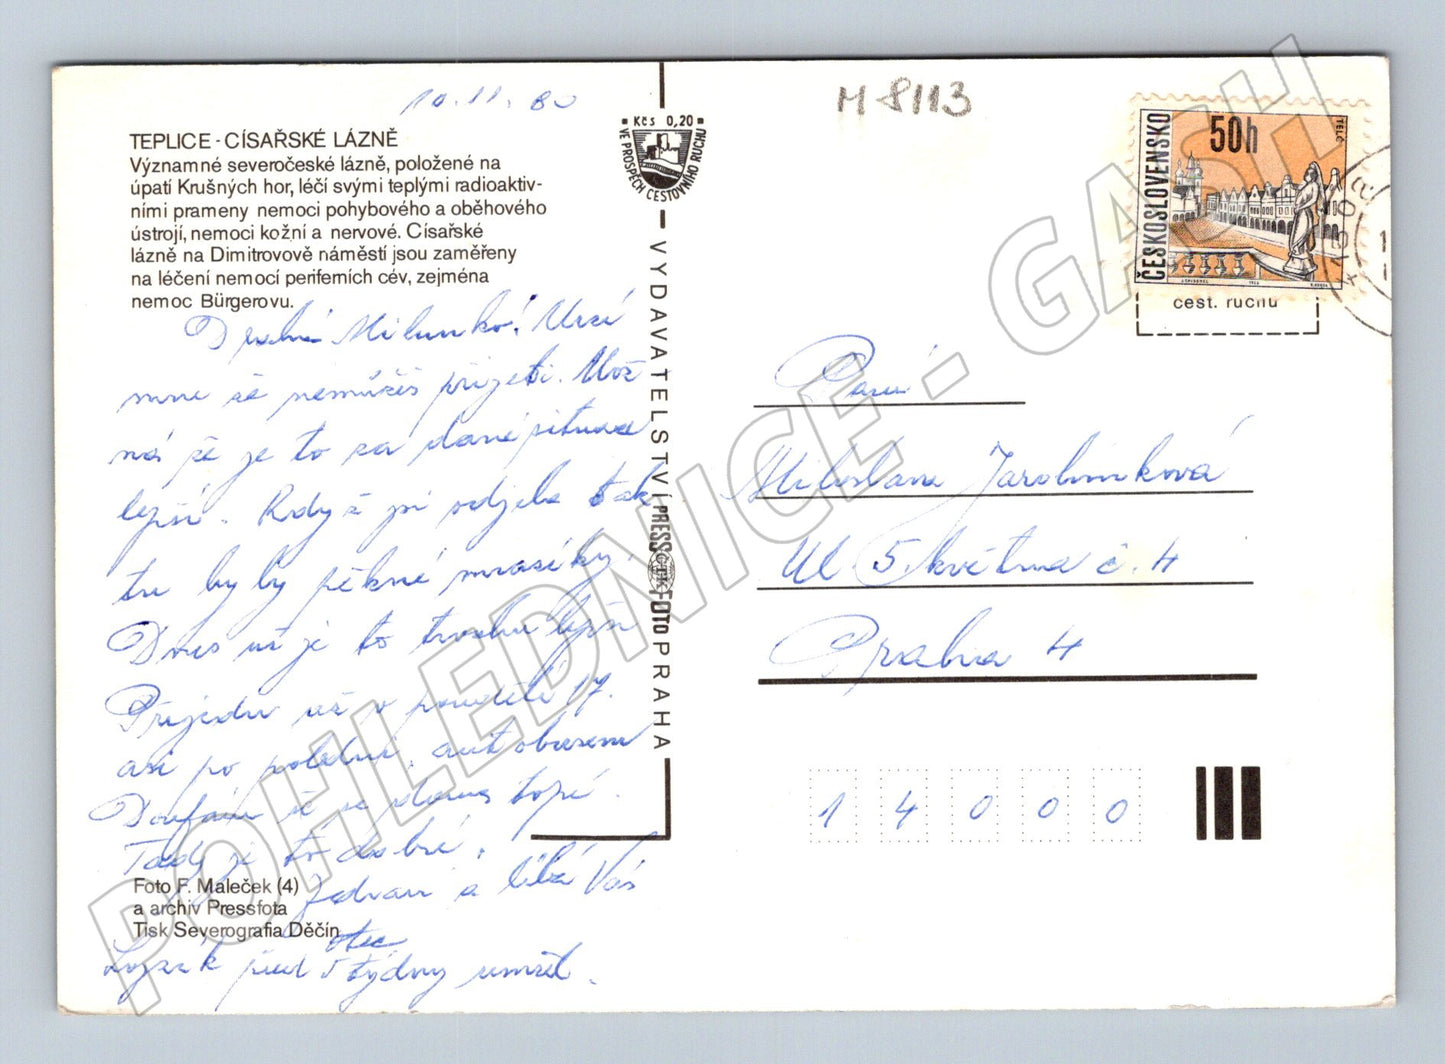 10.11.80
M 8113
TEPLICE - CÍSAŘSKÉ LÁZNĚ
Významné severočeské lázně, položené na
úpatí Krušných hor, léčí svými teplými radioaktiv-
ními prameny nemoci pohybového a oběhového
ústrojí, nemoci kožní a nervové. Císařské
lázně na Dimitrovově náměstí jsou zaměřeny
na léčení nemocí periferních cév, zejména
nemoc Bürgerovu.
Drahá Milunko! Mrzí
mne že nemůžeš přijeti. Mož
ná že je to za dané situace
lepší. Když jsi odjela tak
tu byly pěkné mrazíky.
Dnes už je to trochu lepší
Přijedu už v pondělí 17.
asi po poledni autobusem
Doufám že se doma topí.
Tady je to dobré.
Foto F. Maleček (4)
a archiv Pressfota
Tisk Severografia Děčín
Jedvaří a líbá Vás
otec
Lyzák před 5 týdny umřel.
Kčs 0,20
VE PROSPĚCH CESTOVNÍHO RUCHU
VYDAVATELSTVÍ PRESSFOTO PRAHA
ČTK
ČESKOSLOVENSKO
50h
TELČ
cest. ruchu
Paní
Miloslava Jarolímková
Ul 5. května č. 4
Praha 4
1 4 0 0 0
POHLEDNICE - GASH